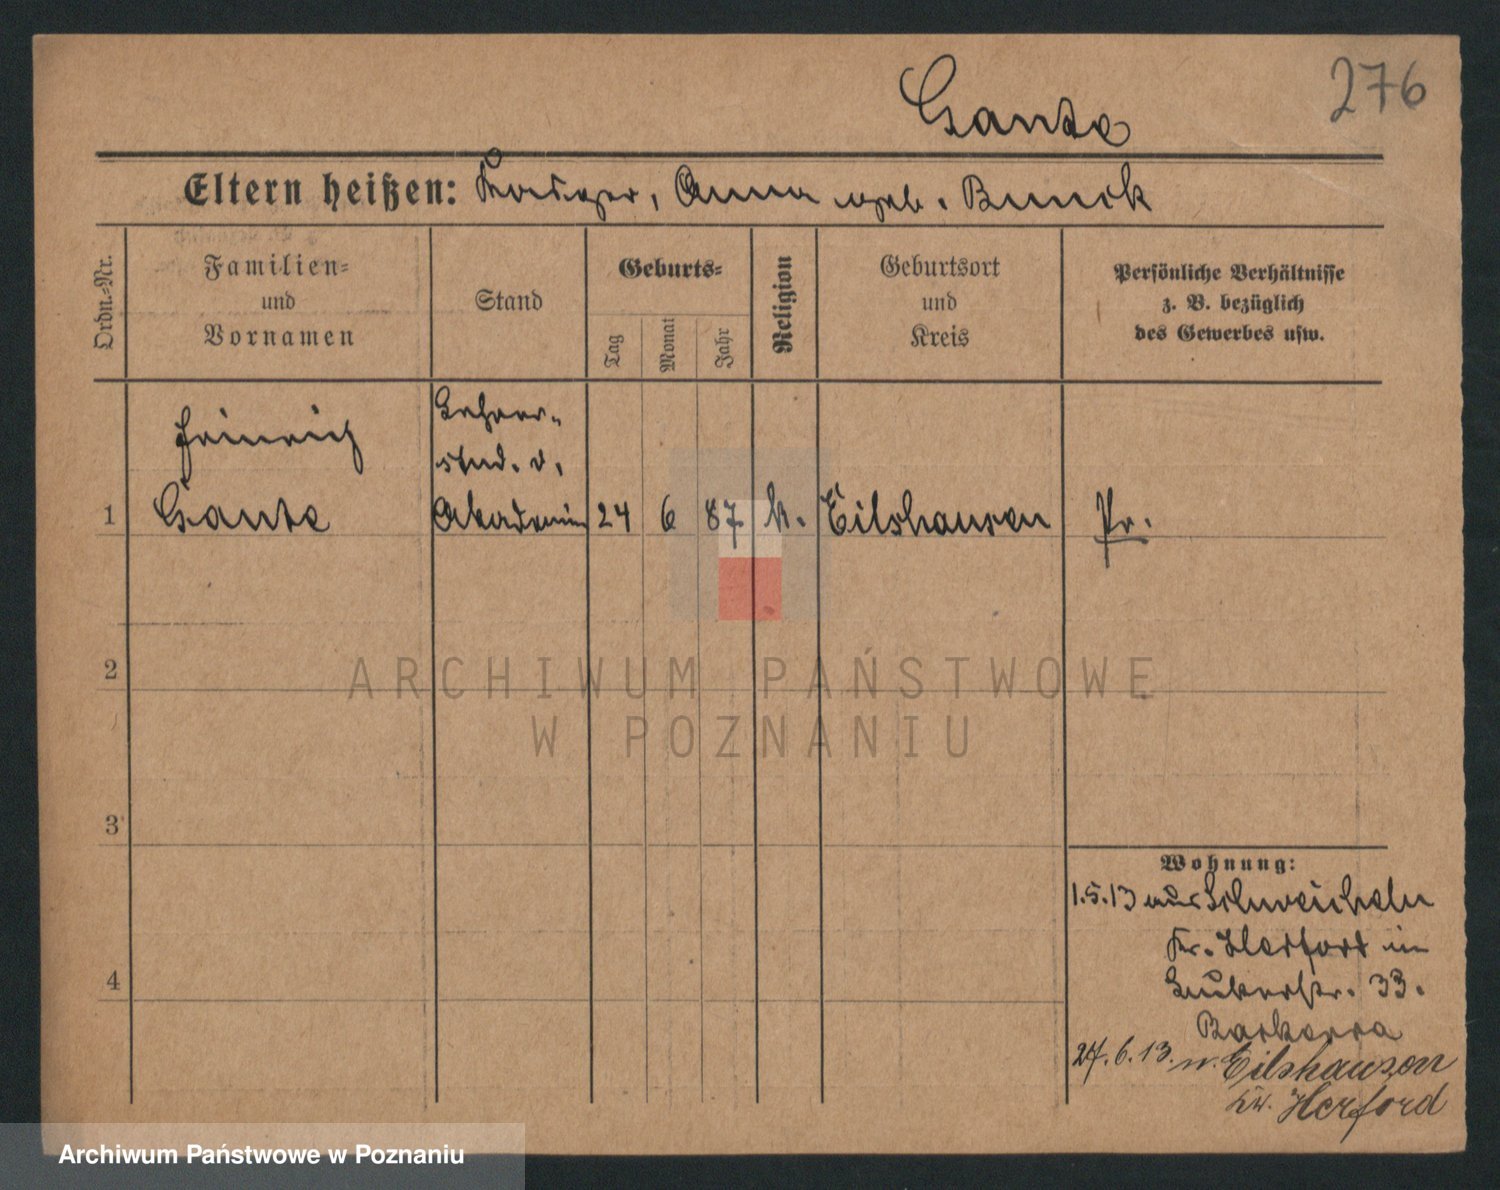 276
Gante
Eltern heißen: Anna geb. Bunck
Ordn.-Nr.
Familien-
und
Vornamen
Stand
Geburts-
Tag
Monat
Jahr
Religion
Geburtsort
und
Kreis
Persönliche Verhältnisse
z. B. bezüglich
des Gewerbes usw.
Heinrich
Lehrer-
stud. d.
1 Gante Akademie 24 6 87 k. Eilshausen Pr.
2
3
4
ARCHIWUM PAŃSTWOWE
W POZNANIU
Wohnung:
1.5.13 aus Schweicheln
Kr. Herford in
33.
27.6.13. n. Eilshausen
Kr. Herford
Archiwum Państwowe w Poznaniu